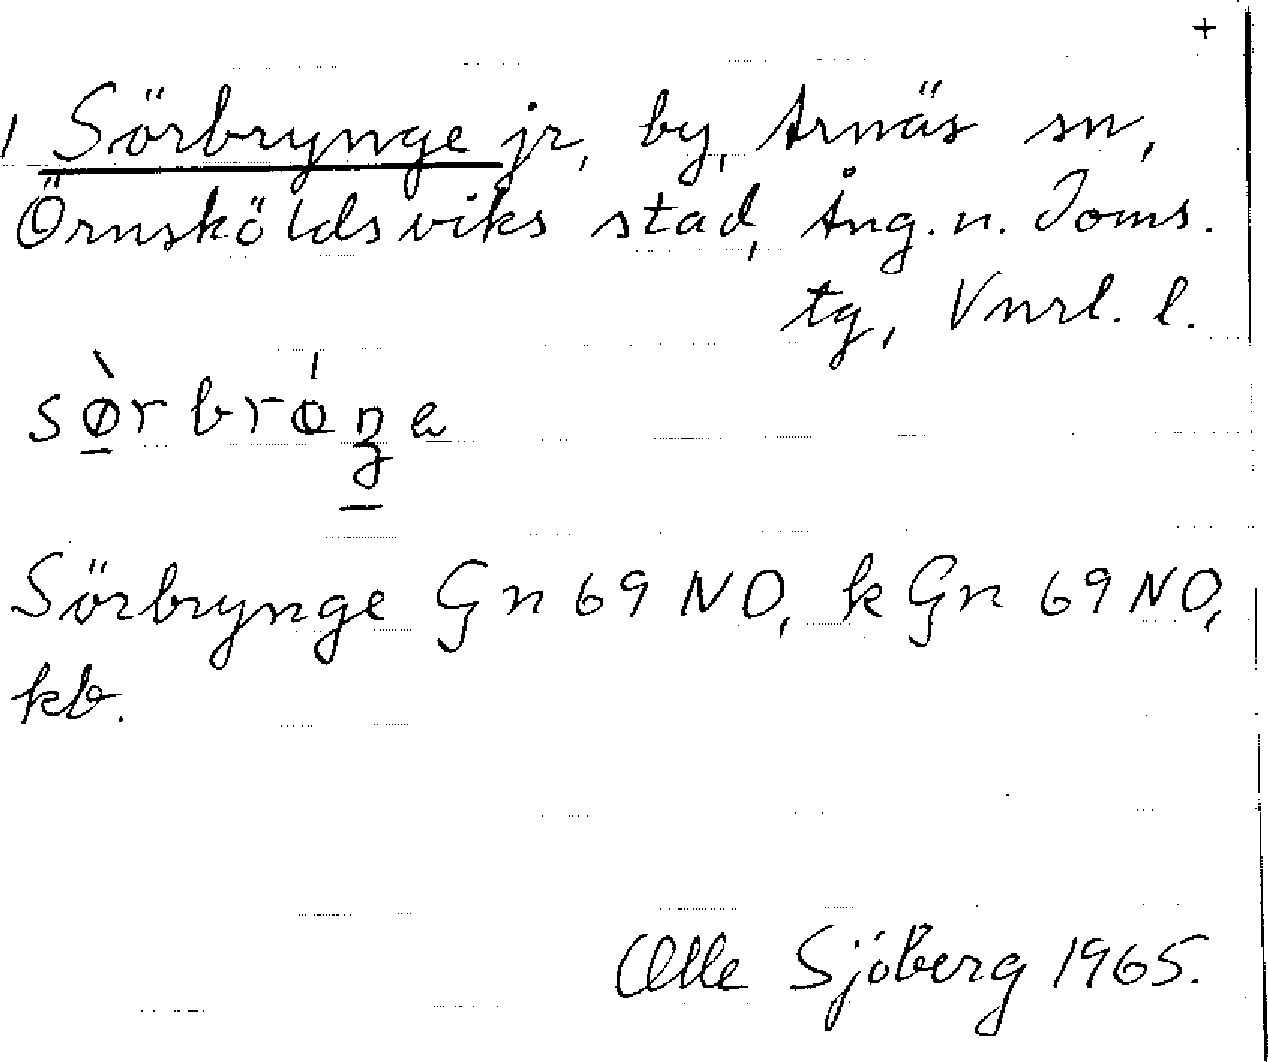 +
1 Sörbrynge jr, by, Arnäs sn,
Örnsköldsviks stad, Ång. n. Doms.
tg, Vnrl. l.
Sörbrynge Gn 69 NO, k Gn 69 NO,
kb.
Olle Sjöberg 1965.